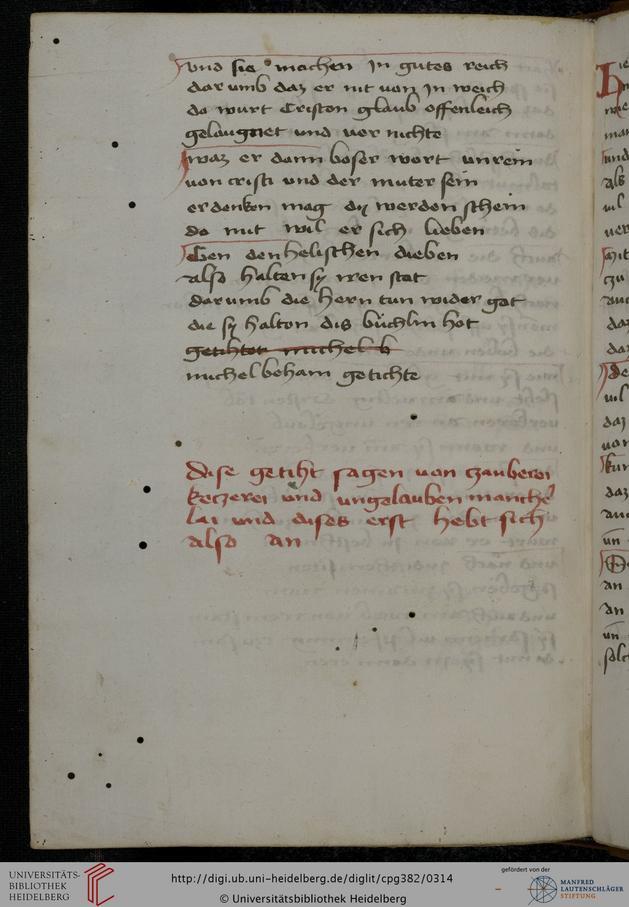 vnd sie machen In gutes reich
dar vmb daz er nit von In weich
do wurt Criston glaub offenleich
gelaugnet vnd vernichte
waz er dann boser wort vnrein
von cristi vnd der muter sein
erdenken mag dy werden schein
do mit wil er sich lieben
Gen den helischen dieben
also halten sy iren stat
dar vmb die hern tun wider got
die sy halton dis büchlin hot
getihtet michel b
michel beham getichte
dise getiht sagen von czauberei
keczerei vnd vngelauben manche
lai vnd dises erst hebt sich
also an
UNIVERSITÄTS-
BIBLIOTHEK
HEIDELBERG
http://digi.ub.uni-heidelberg.de/diglit/cpg382/0314
© Universitätsbibliothek Heidelberg
gefördert von der
MANFRED
LAUTENSCHLÄGER
STIFTUNG